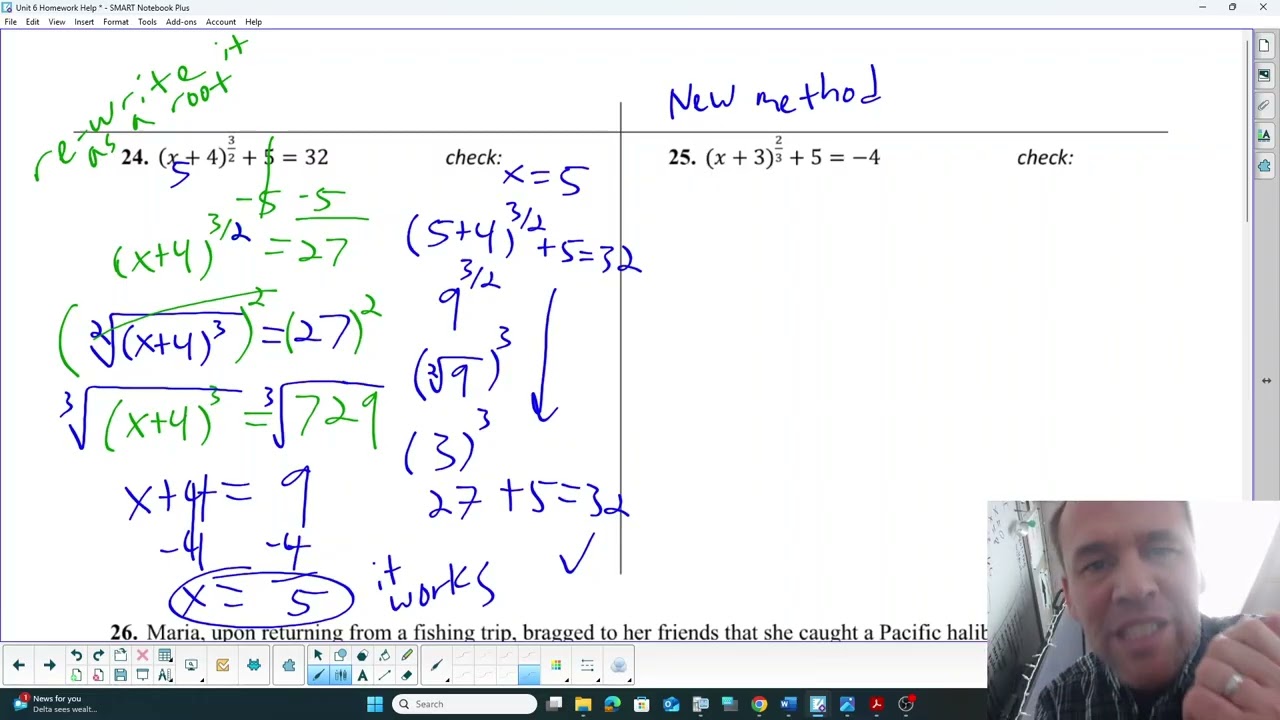 Unit 6 Homework Help * - SMART Notebook Plus
File Edit View Insert Format Tools Add-ons Account Help
re-write it
as a root
New method
24. (x + 4)^(3/2) + 5 = 32
check:
5
-5 -5
(x+4)^(3/2) = 27
(²√(x+4)³)² = (27)²
³√(x+4)³ = ³√729
x+4 = 9
-4 -4
x = 5
it
works
x = 5
(5+4)^(3/2) +5=32
9^(3/2)
(²√9)³
(3)³
27 +5=32
✓
25. (x + 3)^(2/3) + 5 = −4
check:
26. Maria, upon returning from a fishing trip, bragged to her friends that she caught a Pacific halib
1
News for you
Delta sees wealt...
Search